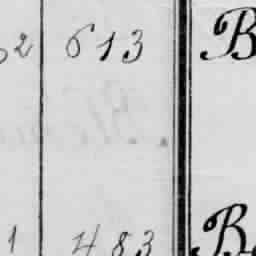 2 613 B
1 483 B